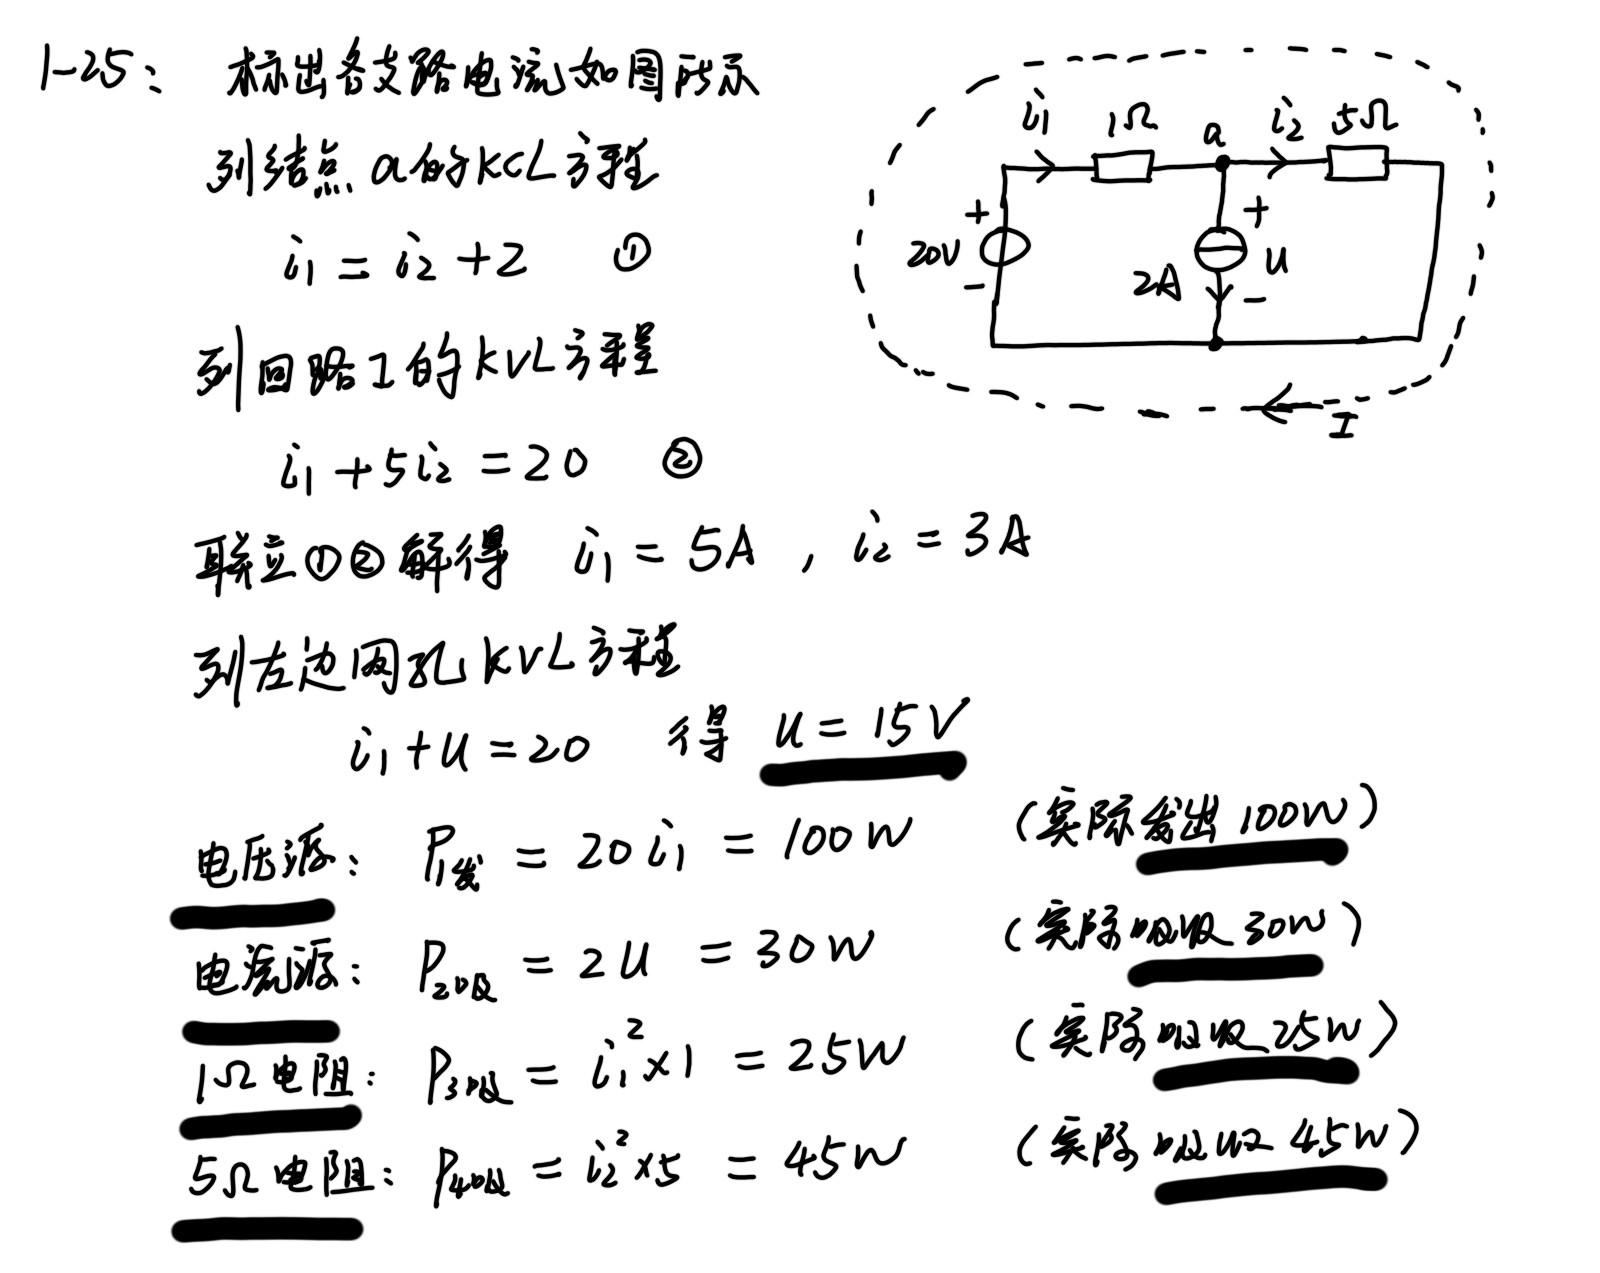 1-25： 标出各支路电流如图所示
列结点 a的KCL方程
i₁ = i₂ + 2 ①
列回路I的KVL方程
i₁ + 5i₂ = 20 ②
联立①②解得 i₁ = 5A , i₂ = 3A
列左边网孔KVL方程
i₁ + u = 20 得 u = 15V
电压源： P₁发 = 20i₁ = 100W （实际发出 100W）
电流源： P₂吸 = 2u = 30W （实际吸收 30W）
1Ω电阻： P₃吸 = i₁²×1 = 25W （实际吸收 25W）
5Ω电阻： P₄吸 = i₂²×5 = 45W （实际吸收 45W）
i₁ 1Ω a i₂ 5Ω
+ +
20V u
- 2A -
I